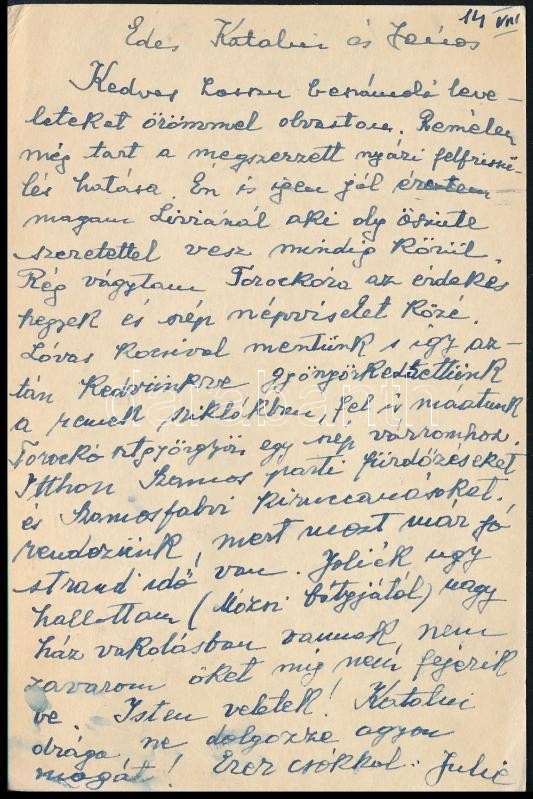 14 VIII
Édes Katalin és János
Kedves hosszu beszámoló leve-
leteket örömmel olvastam. Remélem
még tart a megszerzett nyári felfrissü-
lés hatása. Én is igen jól éreztem
magam Liviánál aki oly őszinte
szeretettel vesz mindig körül.
Rég vágytam Torockóra az érdekes
hegyek és szép népviselet közé.
Lóvas kocsival mentünk s így az-
tán kedvünkre gyönyörködhettünk
a remek sziklákban, fel is masztunk
Torockó sztgyörgyön egy szép várromhoz.
Itthon Szamos parti fürdőzéseket
és Szamosfalvi kiruccanásokat
rendezünk, mert most már jó
strand idő van. Joliék ugy
hallottam (Mózsi bátyjától) nagy
ház vakolásban vannak, nem
zavarom őket míg nem fejezik
be. Isten veletek! Katalin
drága ne dolgozza agyon
magát! Ezer csókkal: Julie
darabanth